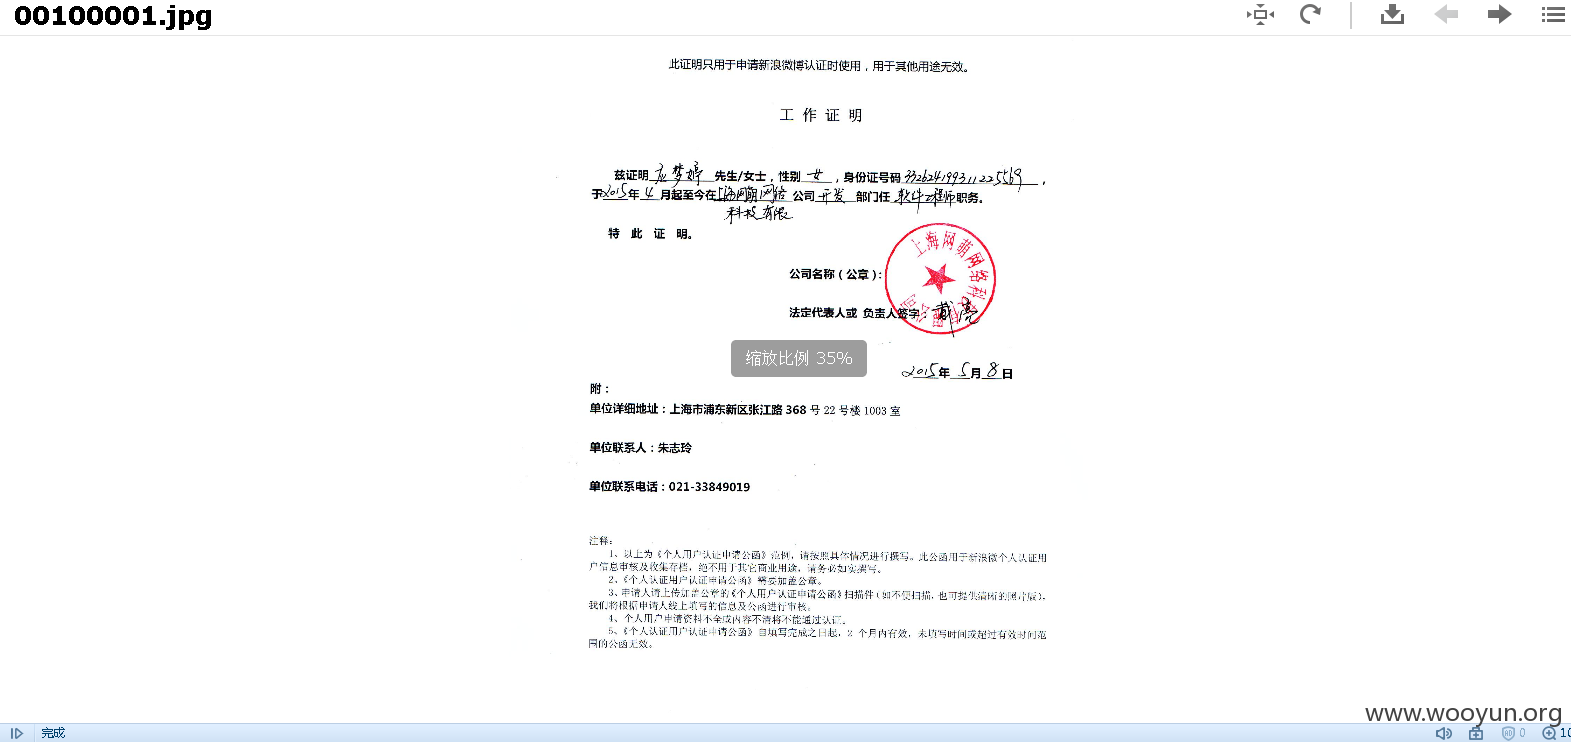 00100001.jpg
此证明只用于申请新浪微博认证时使用，用于其他用途无效。
工 作 证 明
兹证明 应梦婷 先生/女士，性别 女 ，身份证号码 332624199311225569 ，
于2015年 4 月起至今在上海网萌网络 公司 开发 部门任 软件工程师 职务。
科技有限
特 此 证 明。
公司名称（公章）：
上海网萌网络科技有限公司
法定代表人或 负责人签字：
缩放比例 35%
2015年 5月 8日
附：
单位详细地址：上海市浦东新区张江路 368 号 22 号楼 1003 室
单位联系人：朱志玲
单位联系电话：021-33849019
注释：
1、以上为《个人用户认证申请公函》范例，请按照具体情况进行撰写。此公函用于新浪微个人认证用
户信息审核及收集存档，绝不用于其它商业用途，请务必如实撰写。
2、《个人认证用户认证申请公函》需要加盖公章。
3、申请人请上传加盖公章的《个人用户认证申请公函》扫描件（如不便扫描，也可提供清晰的照片版），
我们将根据申请人线上填写的信息及公函进行审核。
4、个人用户申请资料不全或内容不清将不能通过认证。
5、《个人认证用户认证申请公函》自填写完成之日起，2 个月内有效，未填写时间或超过有效时间范
围的公函无效。
www.wooyun.org
完成
0
10